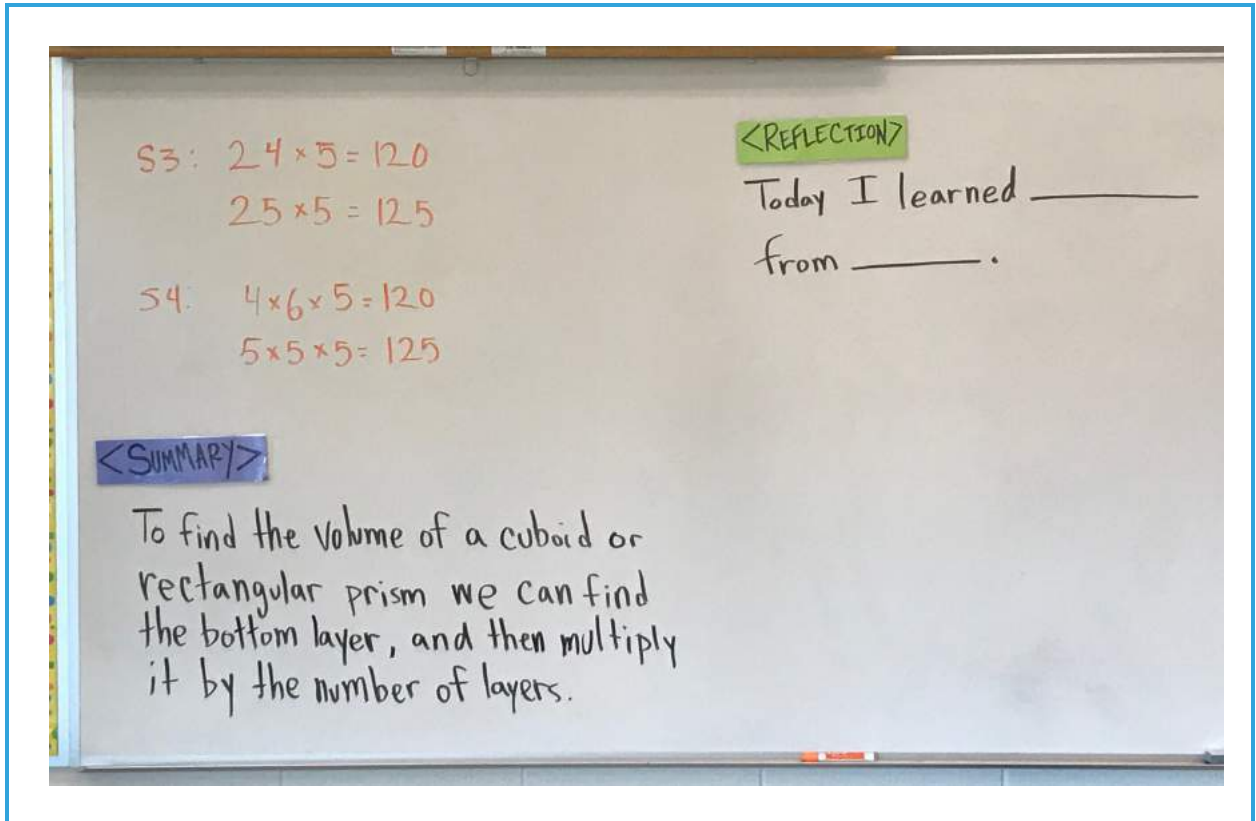 S3: 24 × 5 = 120
25 × 5 = 125
S4. 4 × 6 × 5 = 120
5 × 5 × 5 = 125
<SUMMARY>
To find the volume of a cuboid or
rectangular prism we can find
the bottom layer, and then multiply
it by the number of layers.
<REFLECTION>
Today I learned ________
from ________.